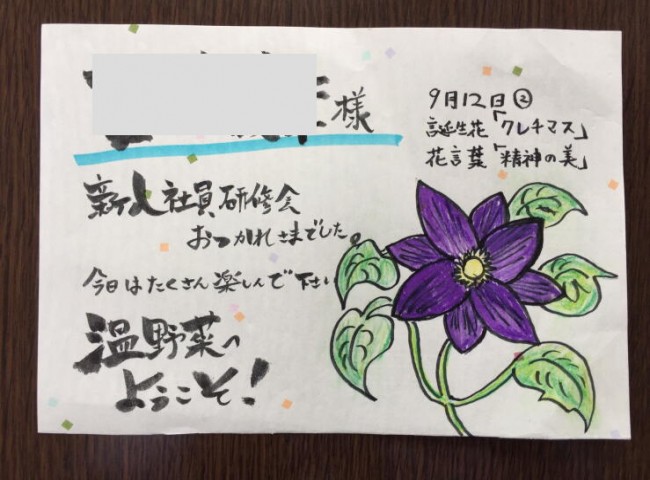 様
9月12日㊋
誕生花「クレチマス」
花言葉「精神の美」
新人社員研修会
おつかれさまでした。
今日はたくさん楽しんで下さい
温野菜へ
ようこそ!